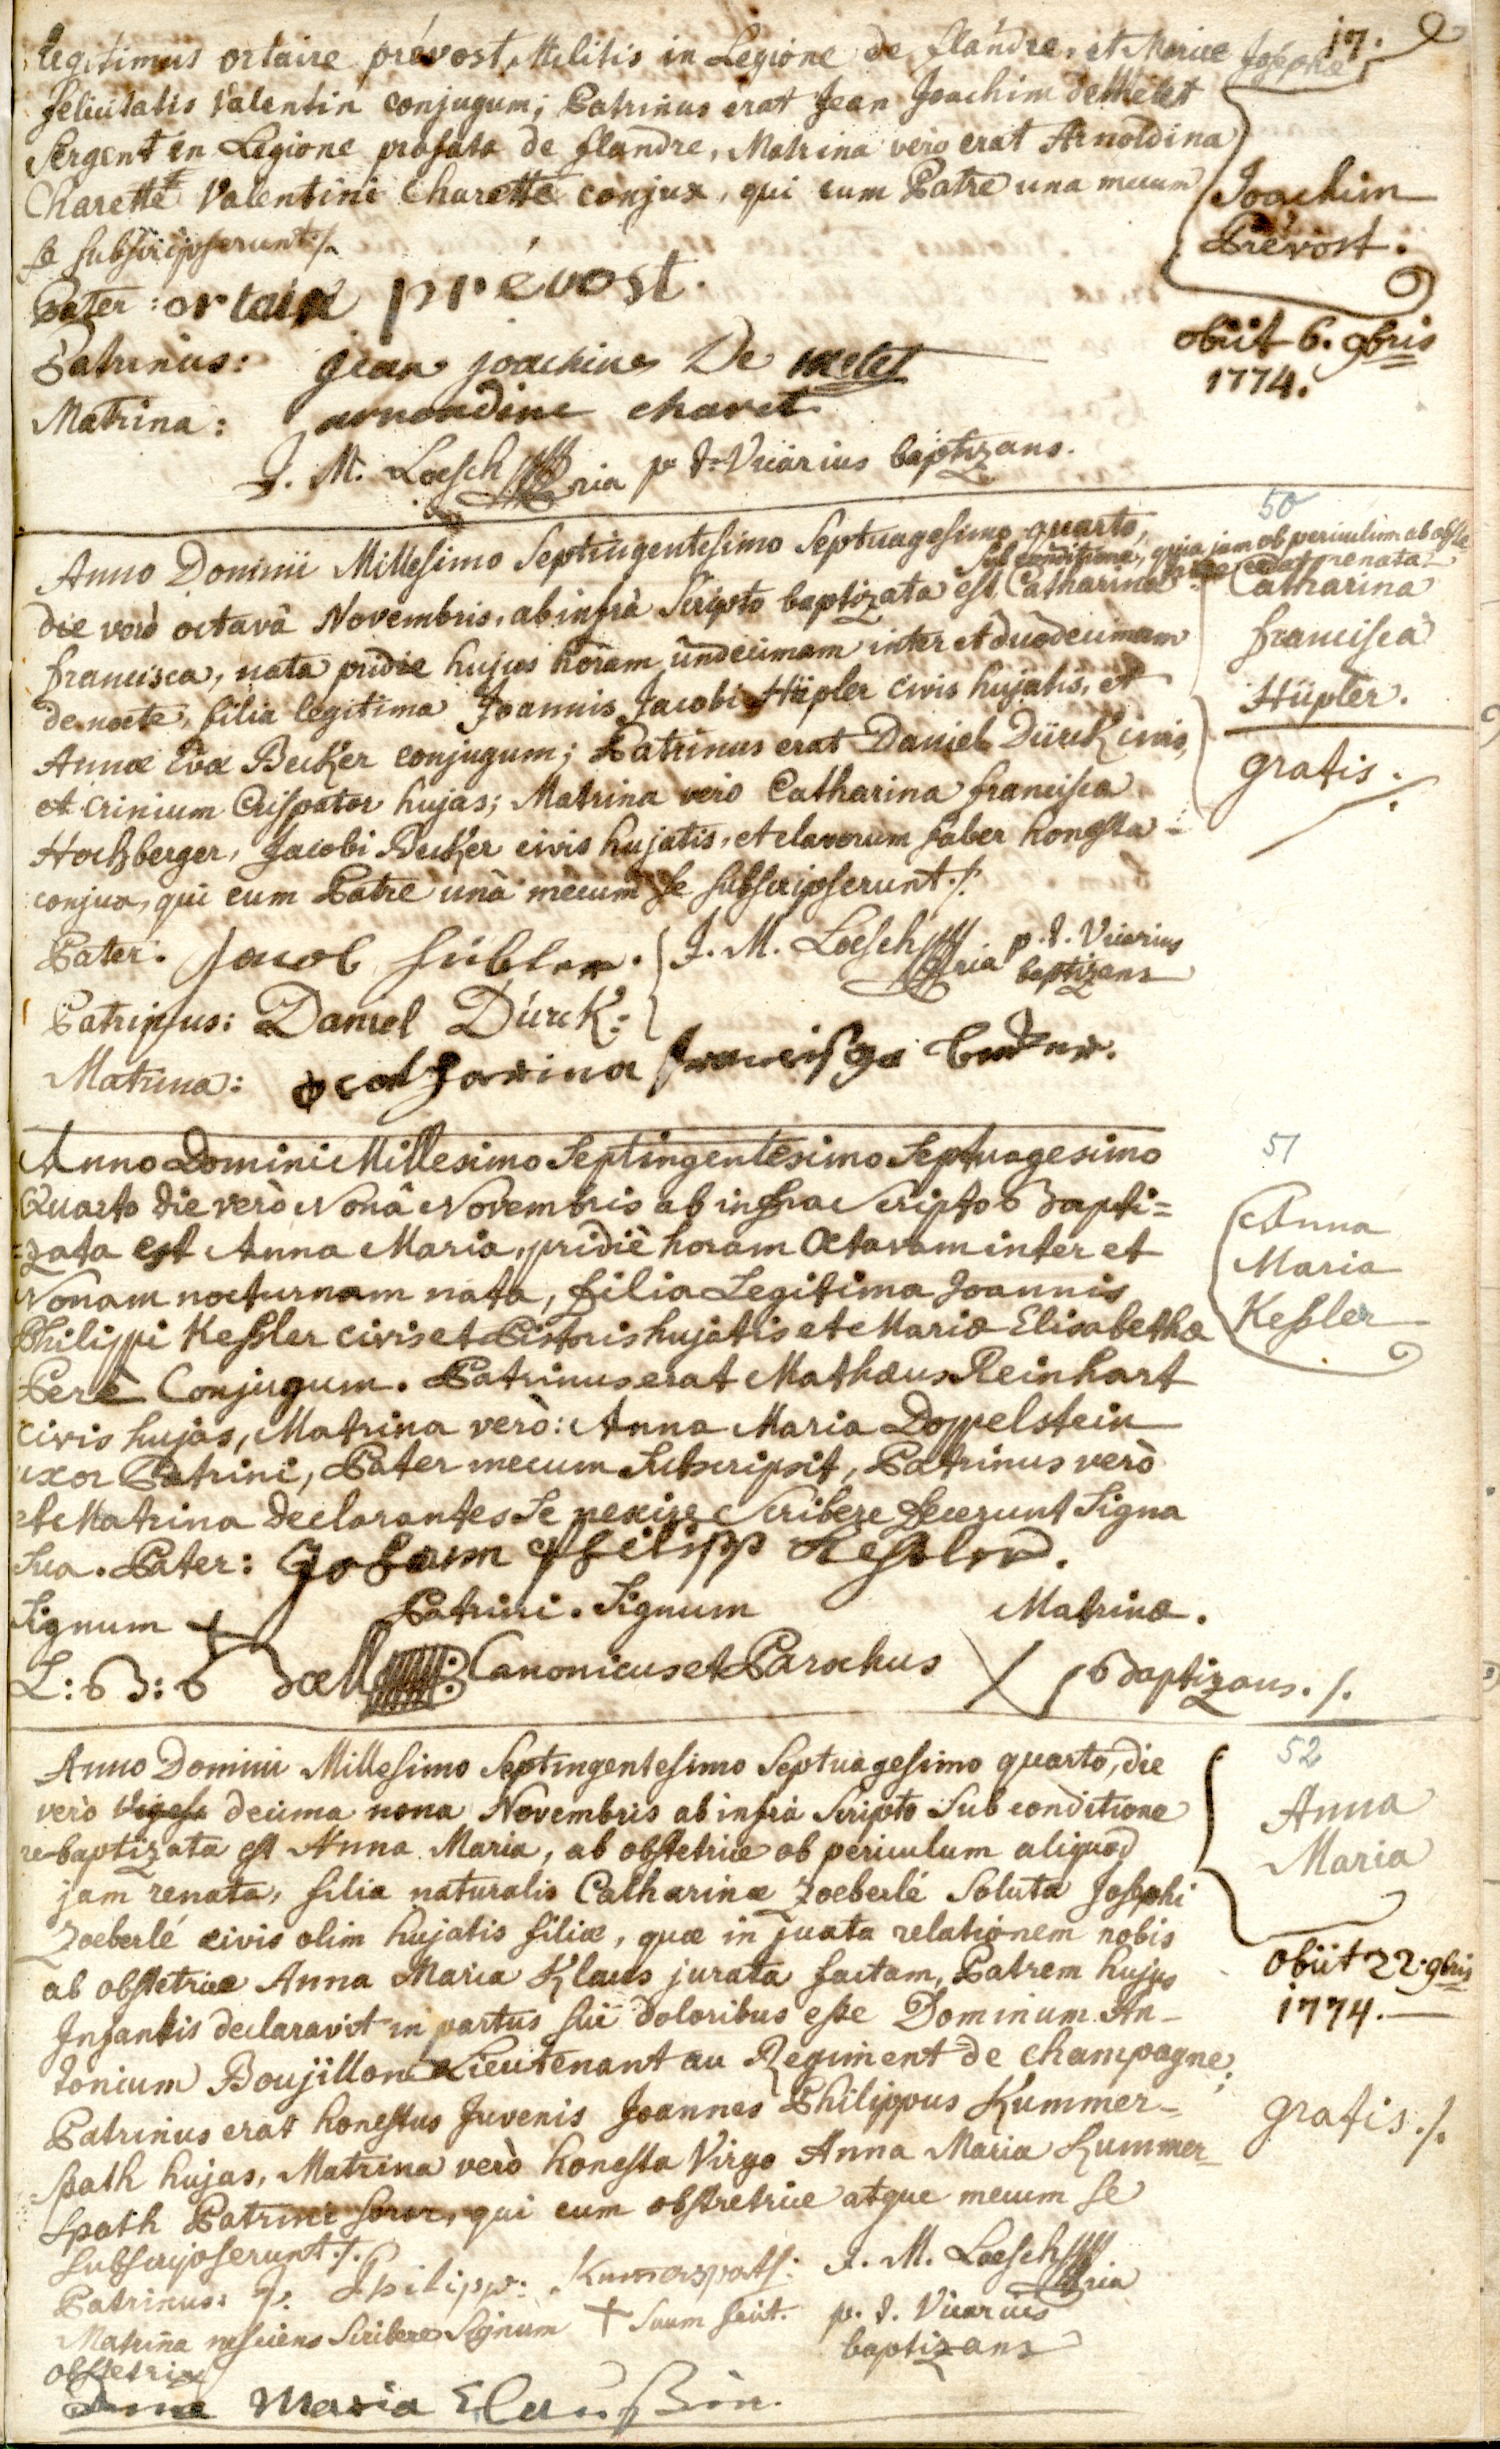 17.
legitimus ortaire prévost, Militis in Legione de flandre, et Mariæ Josephæ
felicitatis Valentin conjugum; Patrinus erat Jean Joachim de Melet
Sergent in Legione præfata de flandre, Matrina vero erat Arnoldina
Charette Valentini Charette conjux, qui cum Patre una mecum
se subscripserunt ./.
Joachim
Prévost.
obiit 6. 9bris
1774.
Pater: ortaire prévost.
Patrinus: jean joachim De melet
Matrina: arnondine charet
J. M. Loesch p. t. Vicarius baptizans.
50
Anno Domini Millesimo Septingentesimo Septuagesimo quarto,
sub conditione, quia jam ob periculum ab obste
trice erat renata
die verò octavâ Novembris, ab infrà Scripto baptizata est Catharina
francisca, nata pridie hujus horam undecimam inter et duodecimam
de nocte, filia legitima Joannis Jacobi Hüpler civis hujatis, et
Annæ Evæ Becker conjugum; Patrinus erat Daniel Dürck civis,
et crinium Crispator hujas; Matrina verò Catharina francisca
Hochberger, Jacobi Becker civis hujatis, et clavorum faber honesta
conjux, qui cum Patre unà mecum se subscripserunt ./.
Catharina
francisca
Hüpler.
gratis ./.
Pater: Jacob hübler.
J. M. Loesch p. t. Vicarius
baptizans
Patrinus: Daniel Dürck:
Matrina: catharina francisca
51
Anno Domini Millesimo Septingentesimo Septuagesimo
Quarto die verò Nonâ Novembris ab infra Scripto Bapti=
=zata est Anna Maria, pridiè horam Octavam inter et
Nonam nocturnam nata, filia Legitima Joannis
Philippi Kessler civis et Pistoris hujatis et Mariæ Elisabethæ
Perè Conjugum. Patrinus erat Mathæus Reinhart
civis hujas, Matrina verò: Anna Maria Doppelstein
uxor Patrini, Pater mecum Subscripsit, Patrinus verò
et Matrina declarantes Se nescire Scribere fecerunt Signa
Sua. Pater: Johann Philipp Kessler.
Anna
Maria
Kessler
Signum + Patrini. Signum Matrinæ.
L: B: Canonicus et Parochus X Baptizans ./.
52
Anno Domini Millesimo Septingentesimo Septuagesimo quarto, die
verò Viges decima nona Novembris ab infrà Scripto Sub conditione
rebaptizata est Anna Maria, ab obstetrice ob periculum aliquod
jam renata, filia naturalis Catharinæ Zoeberlé Soluta Josephi
Zoeberlé civis olim hujatis filiæ, quæ in juxta relationem nobis
ab obstetrice Anna Maria Klaus jurata factam, Patrem hujus
Infantis declaravit in partus sui doloribus esse Dominum An-
tonium Boujillon Lieutenant au Regiment de champagne;
Patrinus erat honestus Juvenis Joannes Philippus Kummer-
spath hujas, Matrina verò honesta Virgo Anna Maria Kummer-
spath Patrini soror, qui cum obstretrice atque mecum se
subscripserunt ./.
Anna
Maria
obiit 22. 9bris
1774.
gratis ./.
Patrinus: J. Philipp: Kumerspath:
J. M. Loesch
p. t. Vicarius
baptizans
Matrina nesciens Scribere Signum + Suum fecit.
obstetrix
Anna Maria Claussin.